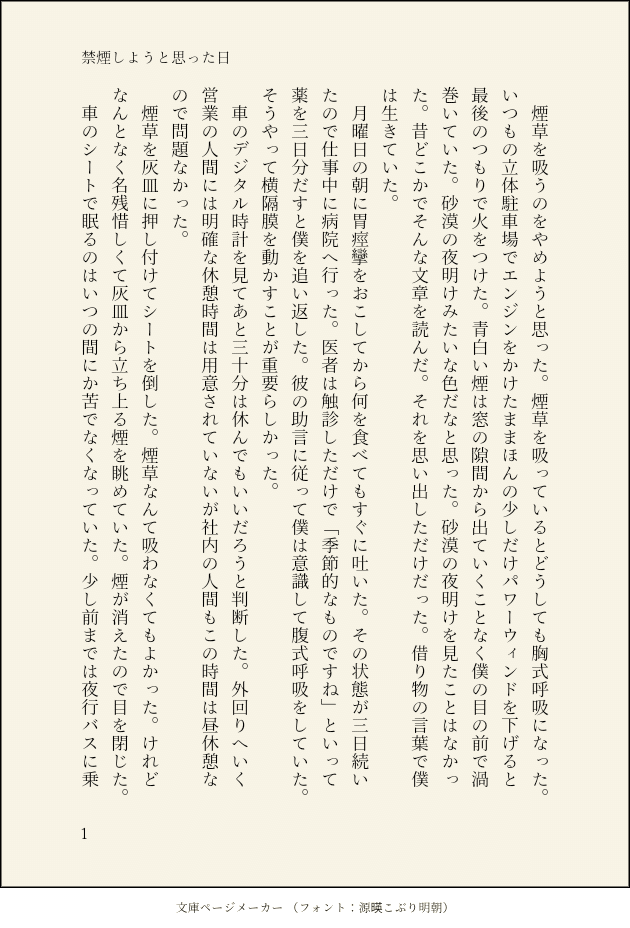 禁煙しようと思った日
煙草を吸うのをやめようと思った。煙草を吸っているとどうしても胸式呼吸になった。
いつもの立体駐車場でエンジンをかけたままほんの少しだけパワーウィンドを下げると
最後のつもりで火をつけた。青白い煙は窓の隙間から出ていくことなく僕の目の前で渦
巻いていた。砂漠の夜明けみたいな色だなと思った。砂漠の夜明けを見たことはなかっ
た。昔どこかでそんな文章を読んだ。それを思い出しただけだった。借り物の言葉で僕
は生きていた。
月曜日の朝に胃痙攣をおこしてから何を食べてもすぐに吐いた。その状態が三日続い
たので仕事中に病院へ行った。医者は触診しただけで「季節的なものですね」といって
薬を三日分だすと僕を追い返した。彼の助言に従って僕は意識して腹式呼吸をしていた。
そうやって横隔膜を動かすことが重要らしかった。
車のデジタル時計を見てあと三十分は休んでもいいだろうと判断した。外回りへいく
営業の人間には明確な休憩時間は用意されていないが社内の人間もこの時間は昼休憩な
ので問題なかった。
煙草を灰皿に押し付けてシートを倒した。煙草なんて吸わなくてもよかった。けれど
なんとなく名残惜しくて灰皿から立ち上る煙を眺めていた。煙が消えたので目を閉じた。
車のシートで眠るのはいつの間にか苦でなくなっていた。少し前までは夜行バスに乗
1
文庫ページメーカー（フォント：源暎こぶり明朝）